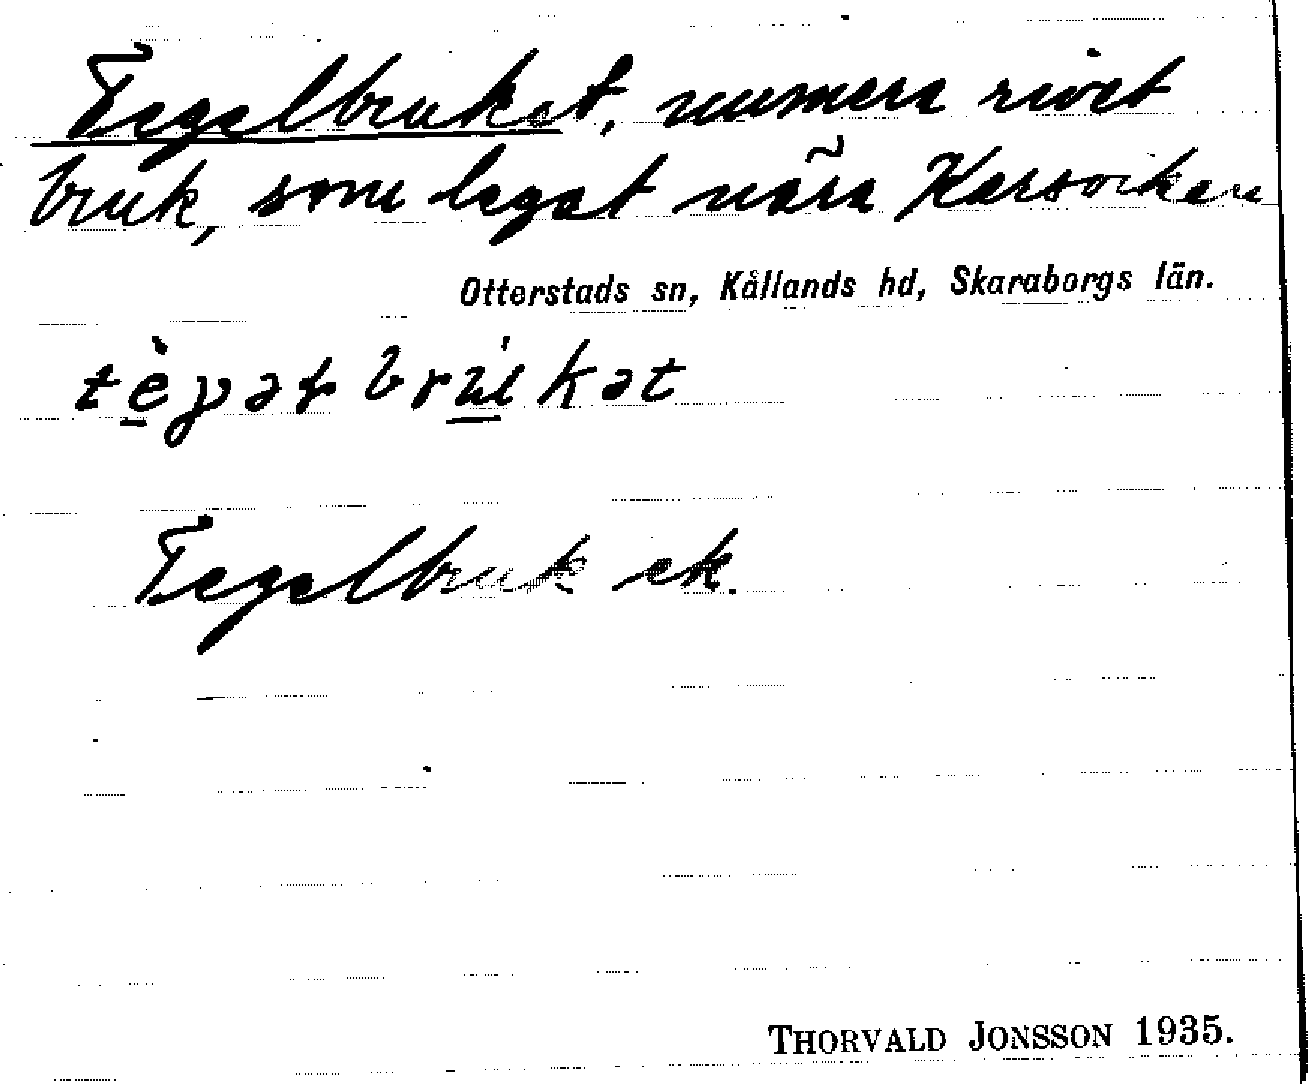 Tegelbruket, numera rivet
bruk, som legat nära Karsviken
Otterstads sn, Kållands hd, Skaraborgs län.
Tegelbruk ek.
THORVALD JONSSON 1935.